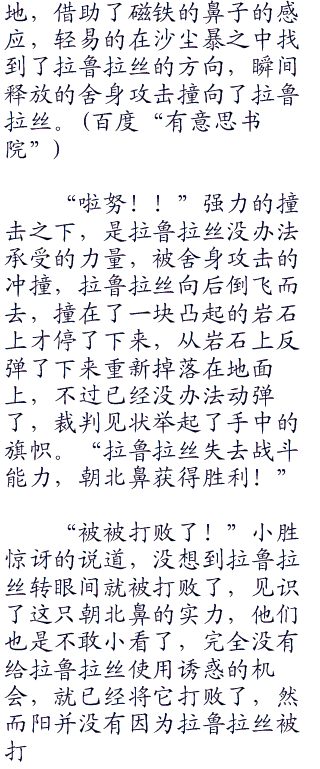 地，借助了磁铁的鼻子的感
应，轻易的在沙尘暴之中找
到了拉鲁拉丝的方向，瞬间
释放的舍身攻击撞向了拉鲁
拉丝。(百度“有意思书
院”)
“啦努！！”强力的撞
击之下，是拉鲁拉丝没办法
承受的力量，被舍身攻击的
冲撞，拉鲁拉丝向后倒飞而
去，撞在了一块凸起的岩石
上才停了下来，从岩石上反
弹了下来重新掉落在地面
上，不过已经没办法动弹
了，裁判见状举起了手中的
旗帜。“拉鲁拉丝失去战斗
能力，朝北鼻获得胜利！”
“被被打败了！”小胜
惊讶的说道，没想到拉鲁拉
丝转眼间就被打败了，见识
了这只朝北鼻的实力，他们
也是不敢小看了，完全没有
给拉鲁拉丝使用诱惑的机
会，就已经将它打败了，然
而阳并没有因为拉鲁拉丝被
打